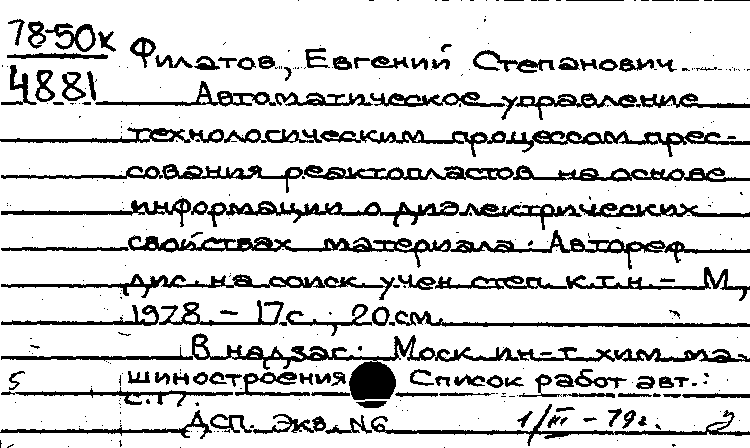 78-50к
4881
Филатов, Евгений Степанович
Автоматическое управление
технологическим процессом прес-
сования реактопластов на основе
информации о диэлектрических
свойствах материала. Автореф.
дис. на соиск. учен. степ. к.т.н. - М.,
1978. - 17с.; 20см.
В надзаг.: Моск. ин-т хим. ма-
5 шиностроения Список работ авт.:
с.17.
ДСП. Экз. №6 1/III - 79г.